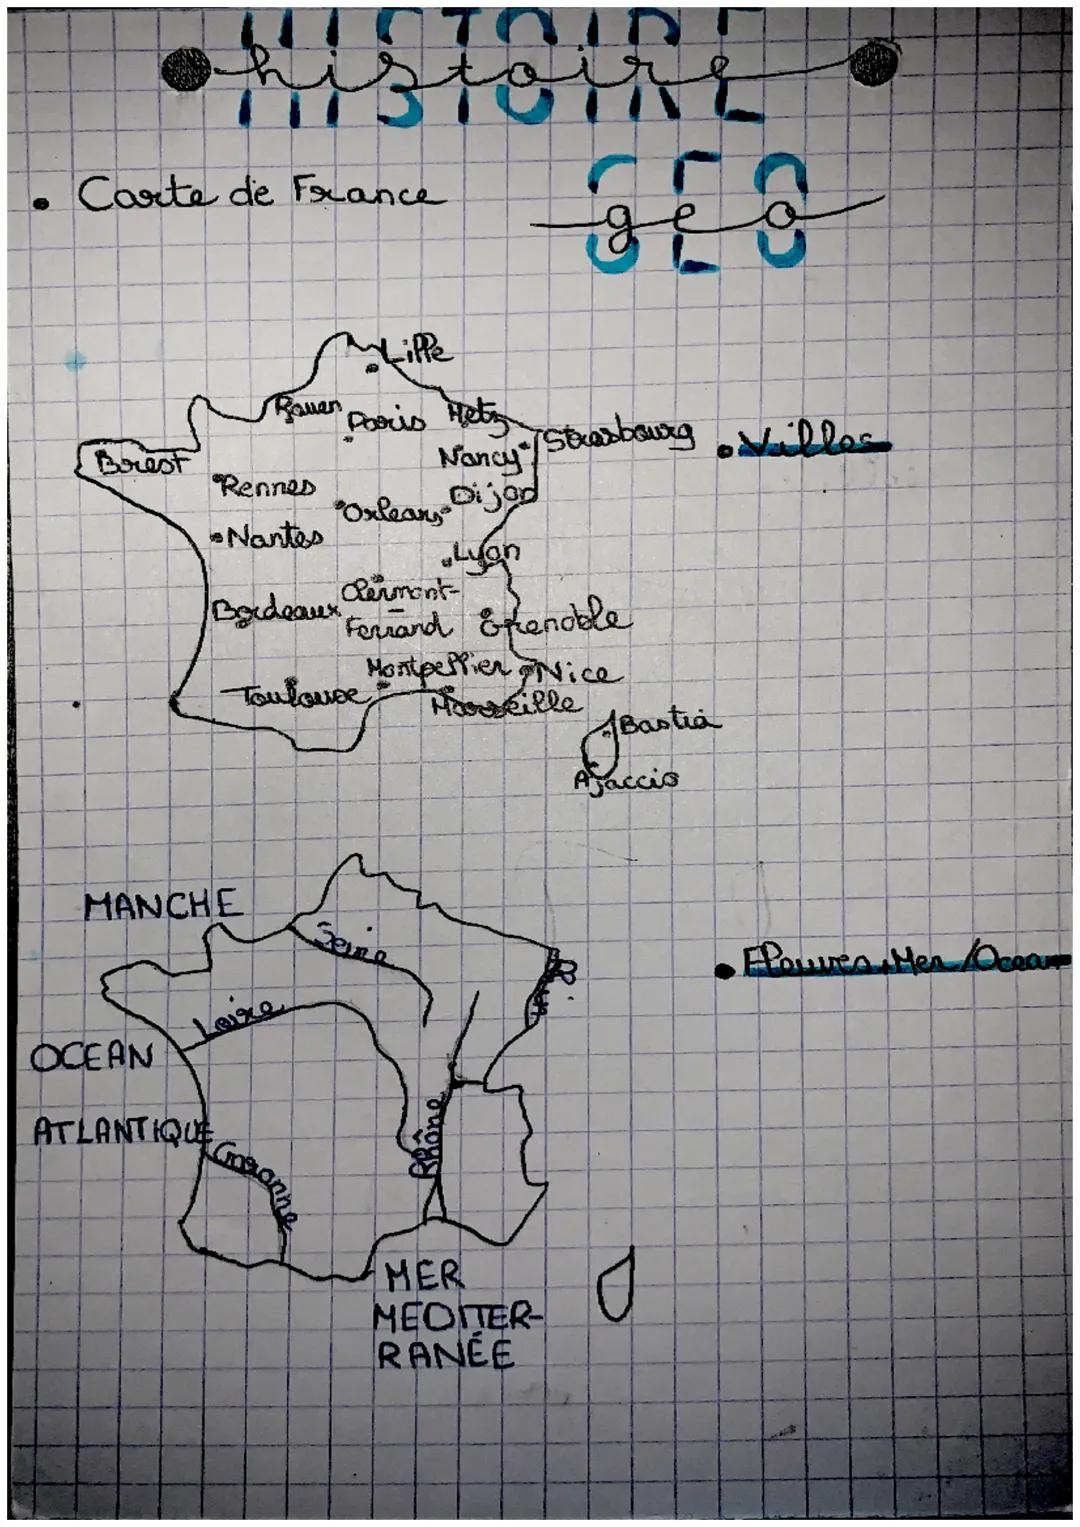 HISTOIRE
histoire
GEO
geo
• Carte de France
Lille
Rouen
Paris
Metz
Strasbourg
• Villes
Brest
Nancy
Rennes
Dijon
Orleans
Nantes
Lyon
Clermont-
Ferrand
Bordeaux
Grenoble
Montpellier
Nice
Toulouse
Marseille
Bastia
Ajaccio
MANCHE
Seine
• Fleuves, Mer/Ocean
Loire
OCEAN
ATLANTIQUE
Rhône
Garonne
MER
MEDITER-
RANÉE